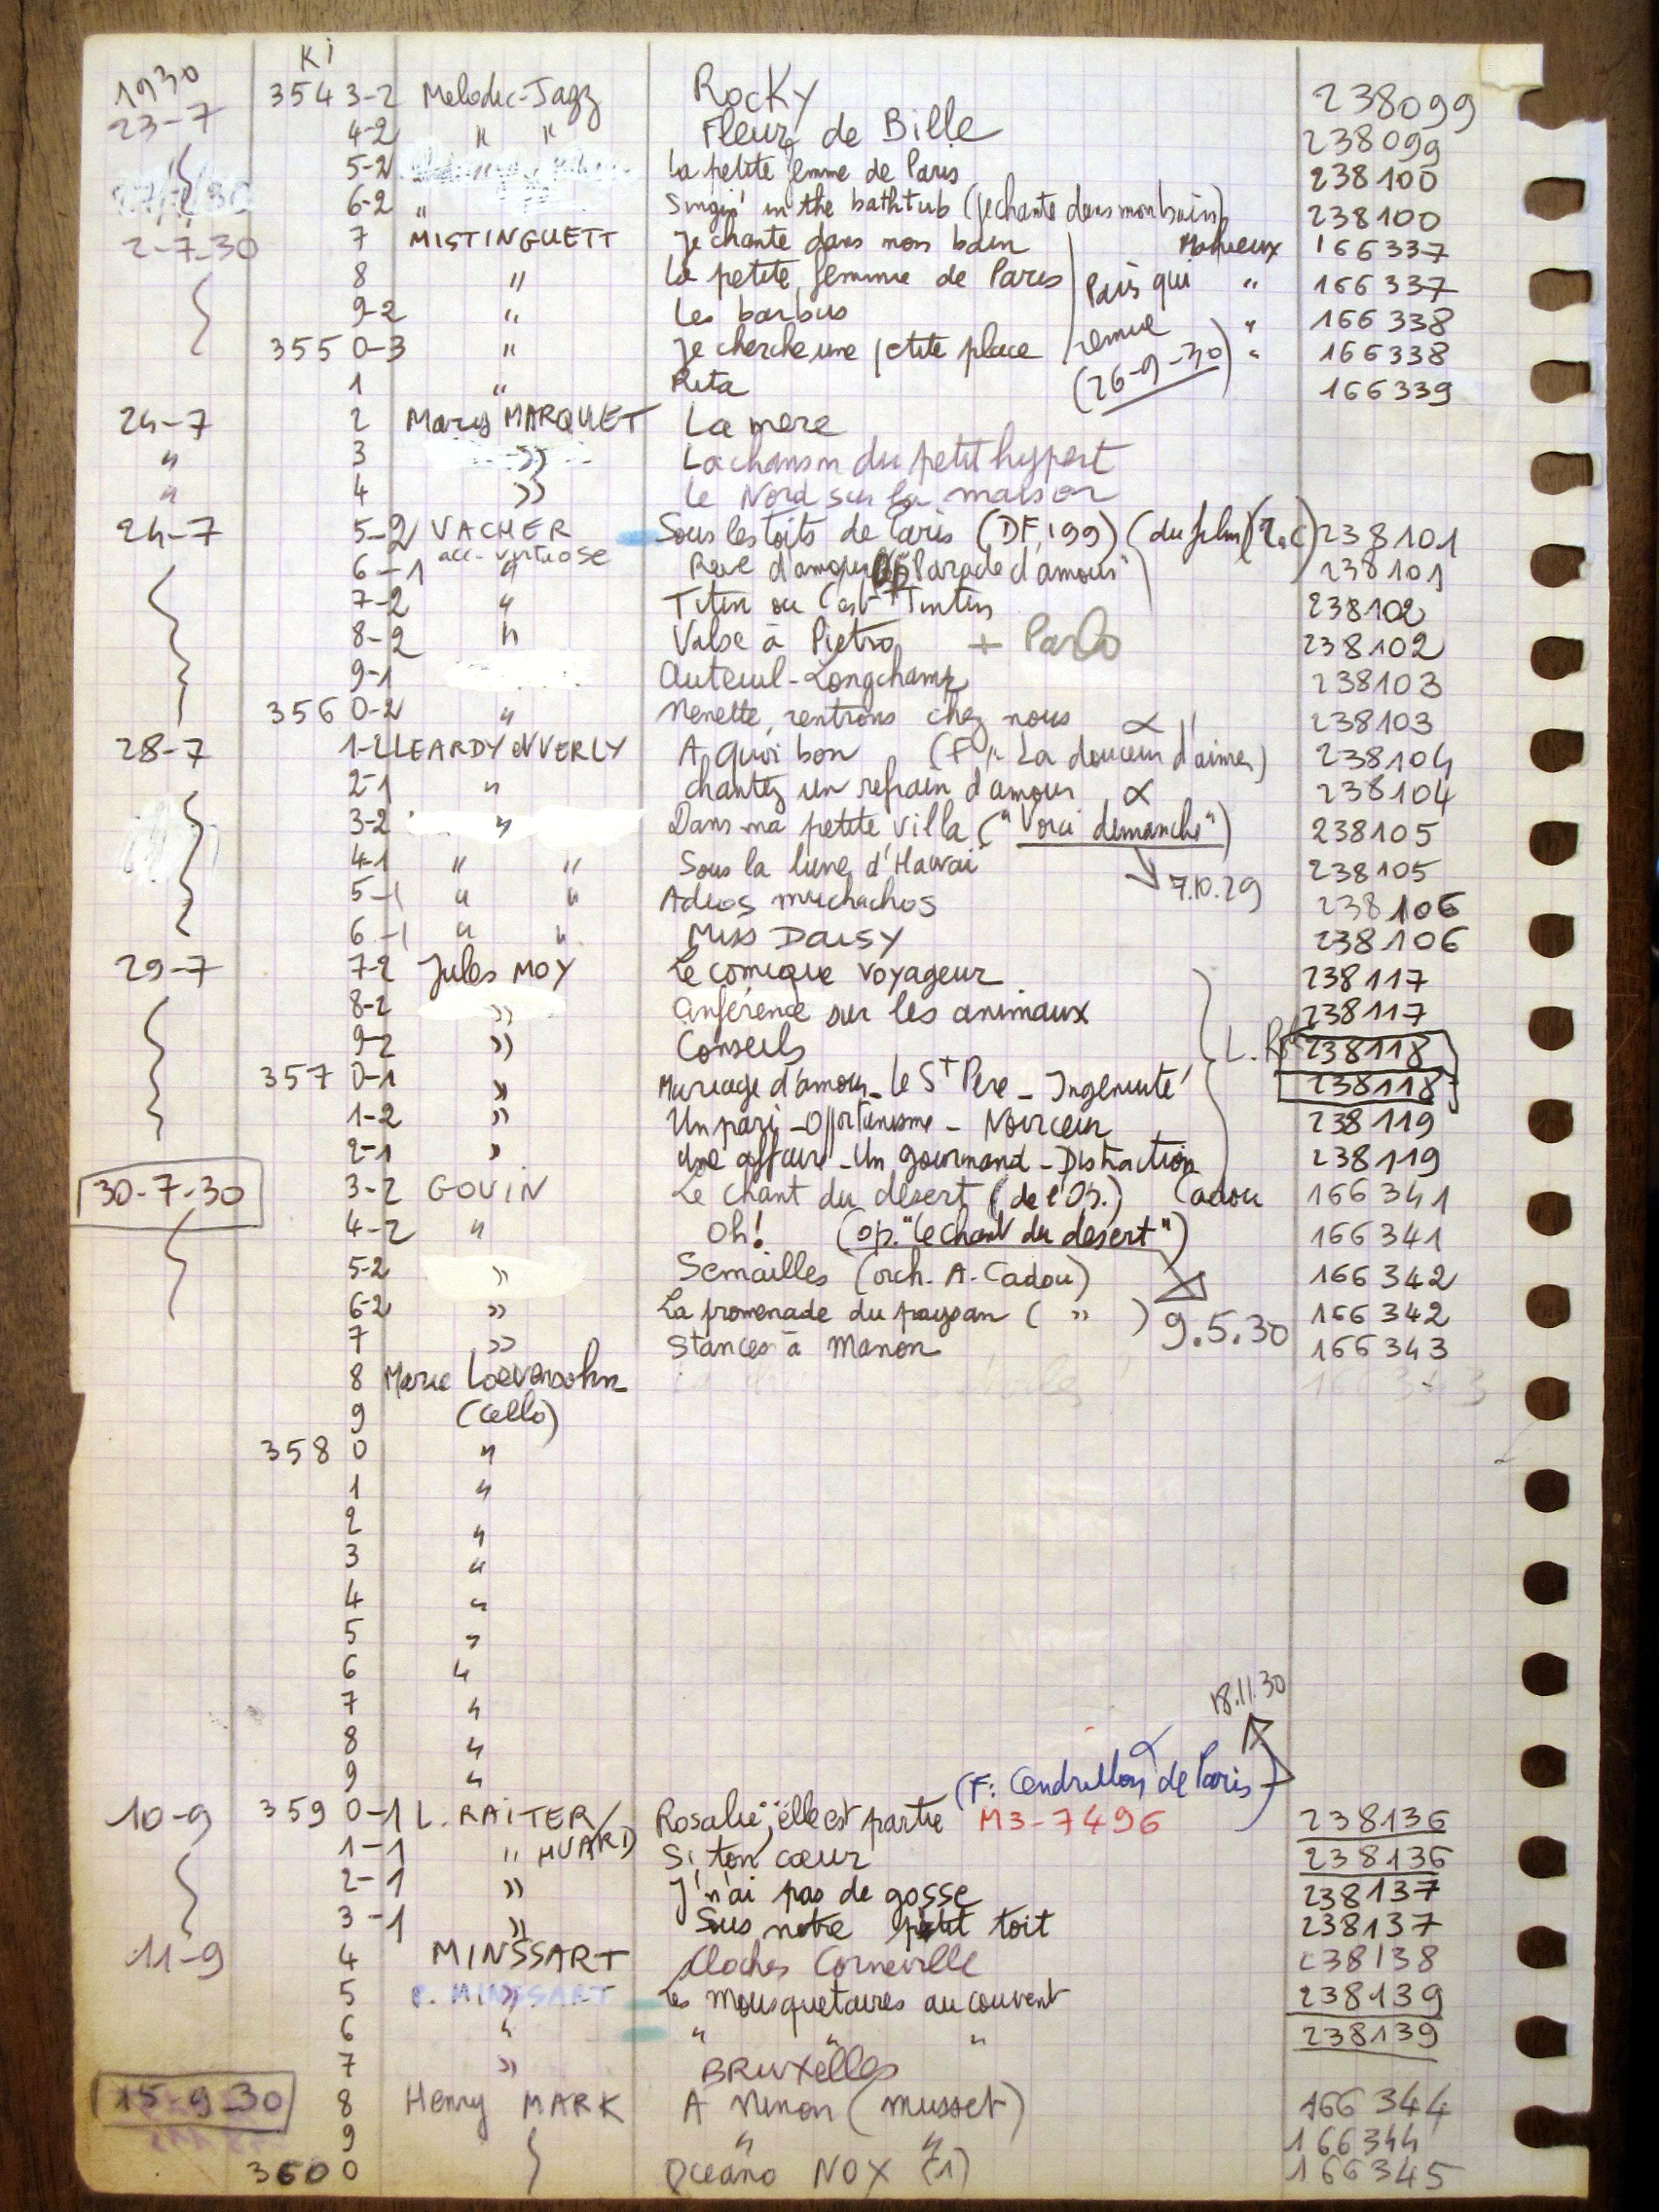 1930 KI
23-7 354 3-2 Melodic-Jazz Rocky 238099
4-2 " " Fleur de Bille 238099
5-2 La petite femme de Paris 238100
6-2 " Singin' in the bathtub (je chante dans mon bain) 238100
2-7-30 7 MISTINGUETT Je chante dans mon bain 166337
8 " La petite femme de Paris Paris qui " 166337
9-2 " Les barbus remue " 166338
355 0-3 " Je cherche une petite place (26-9-30) " 166338
1 " Rita 166339
24-7 2 Mary MARQUET La mere
" 3 » La chanson du petit hypert
" 4 » Le Nord sur la maison
24-7 5-2 VACHER Sous les toits de Paris (DF, 199) (du film) 238101
acc. virtuose
6-1 " Reve d'amour "Parade d'amour" 238101
7-2 " Titin ou C'est Tintin 238102
8-2 " Valse à Pietro + Parlo 238102
9-1 Auteuil-Longchamp 238103
356 0-2 " Nenette, rentrons chez nous α " 238103
28-7 1-2 LEARDY et VERLY A quoi bon (F. "La douceur d'aimer) 238104
2-1 " chantez un refrain d'amour α 238104
3-2 " Dans ma petite villa ("Voici dimanche") 238105
4-1 " " Sous la lune d'Hawai 238105
7.10.29
5-1 " " Adios muchachos 238106
6-1 " " Miss Daisy 238106
29-7 7-2 Jules MOY Le comique voyageur 238117
8-2 » Conférence sur les animaux 238117
9-2 » Conseils 238118
357 0-1 » Mariage d'amour - Le St Pere - Ingenuité 238118
1-2 » Un pari - Opportunisme - Noirceur 238119
2-1 » Une affaire - Un gourmand - Distraction 238119
30-7-30 3-2 GOUIN Le chant du désert (de l'Op.) Cadou 166341
4-2 " Oh! (op. "Le chant du désert") 166341
5-2 » Semailles (orch. A. Cadou) 166342
6-2 » La promenade du paysan ( » ) 9.5.30 166342
7 » Stances à Manon 166343
8 Marie Loevensohn
9 (cello)
358 0 "
1 "
2 "
3 "
4 "
5 "
6 "
7 "
18.11.30
8 "
9 " (F: Cendrillon de Paris)
10-9 359 0-1 L. RAITER/ Rosalie, elle est partie M3-7496 238136
1-1 " HUARD Si ton cœur 238136
2-1 » J'n'ai pas de gosse 238137
3-1 » Sous notre petit toit 238137
11-9 4 MINSSART Cloches Corneville 238138
5 P. MINSSART Les mousquetaires au couvent 238139
6 " " " " 238139
7 » BRUXelles
15-9-30 8 Henry MARK A Ninon (Musset) 166344
9 " " 166344
360 0 Oceano NOX (1) 166345